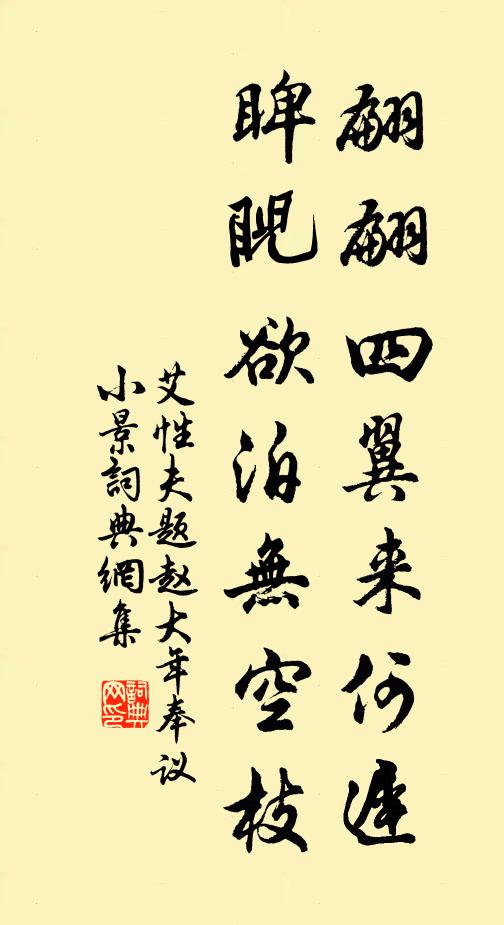 翩翩四翼来何遲
睥睨欲泊無空枝
艾性夫题赵大年奉议
小景詞典網集
詞典
网印